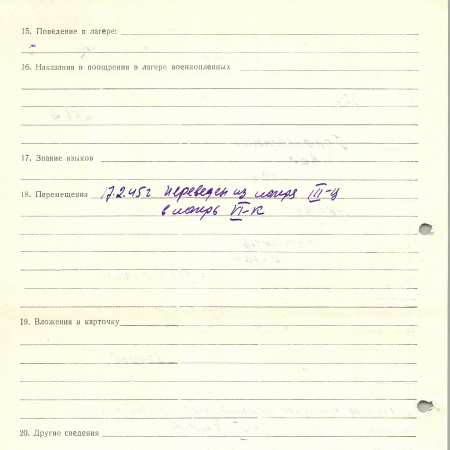 15. Поведение в лагере:
16. Наказания и поощрения в лагере военнопленных
17. Знание языков
18. Перемещения 17.2.45 г переведен из лагеря III-Ц
в лагерь VI-К
19. Вложения в карточку
20. Другие сведения